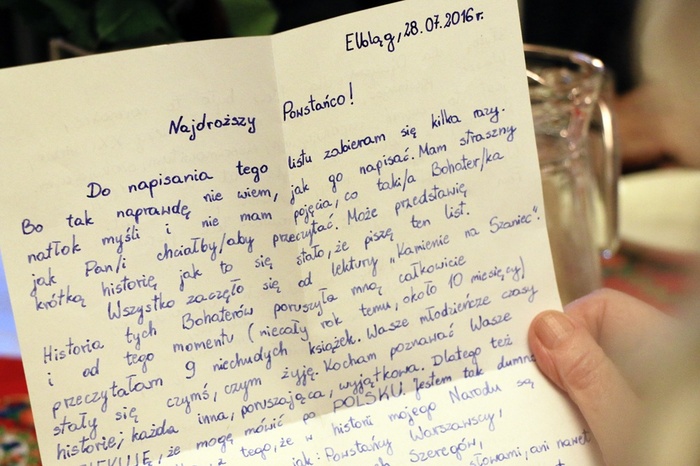 Elbląg, 28.07.2016r.
Najdroższy Powstańco!
Do napisania tego listu zabieram się kilka razy.
Bo tak naprawdę nie wiem, jak go napisać. Mam straszny
natłok myśli i nie mam pojęcia, co taki/a Bohater/ka
jak Pan/i chciałby/aby przeczytać. Może przedstawię
krótką historię jak to się stało, że piszę ten list.
Wszystko zaczęło się od lektury „Kamienie na Szaniec".
Historia tych Bohaterów poruszyła mną całkowicie
i od tego momentu (niecały rok temu, około 10 miesięcy)
przeczytałam 9 niechudych książek. Wasze młodzieńcze czasy
stały się czymś, czym żyję. Kocham poznawać Wasze
historie, każda inna, poruszająca, wyjątkowa. Dlatego też
że mogę mówić po POLSKU. Jestem tak dumna
z tego, że w historii mojego Narodu są
jak: Powstańcy Warszawscy,
Szeregów,
słowami, ani nawet